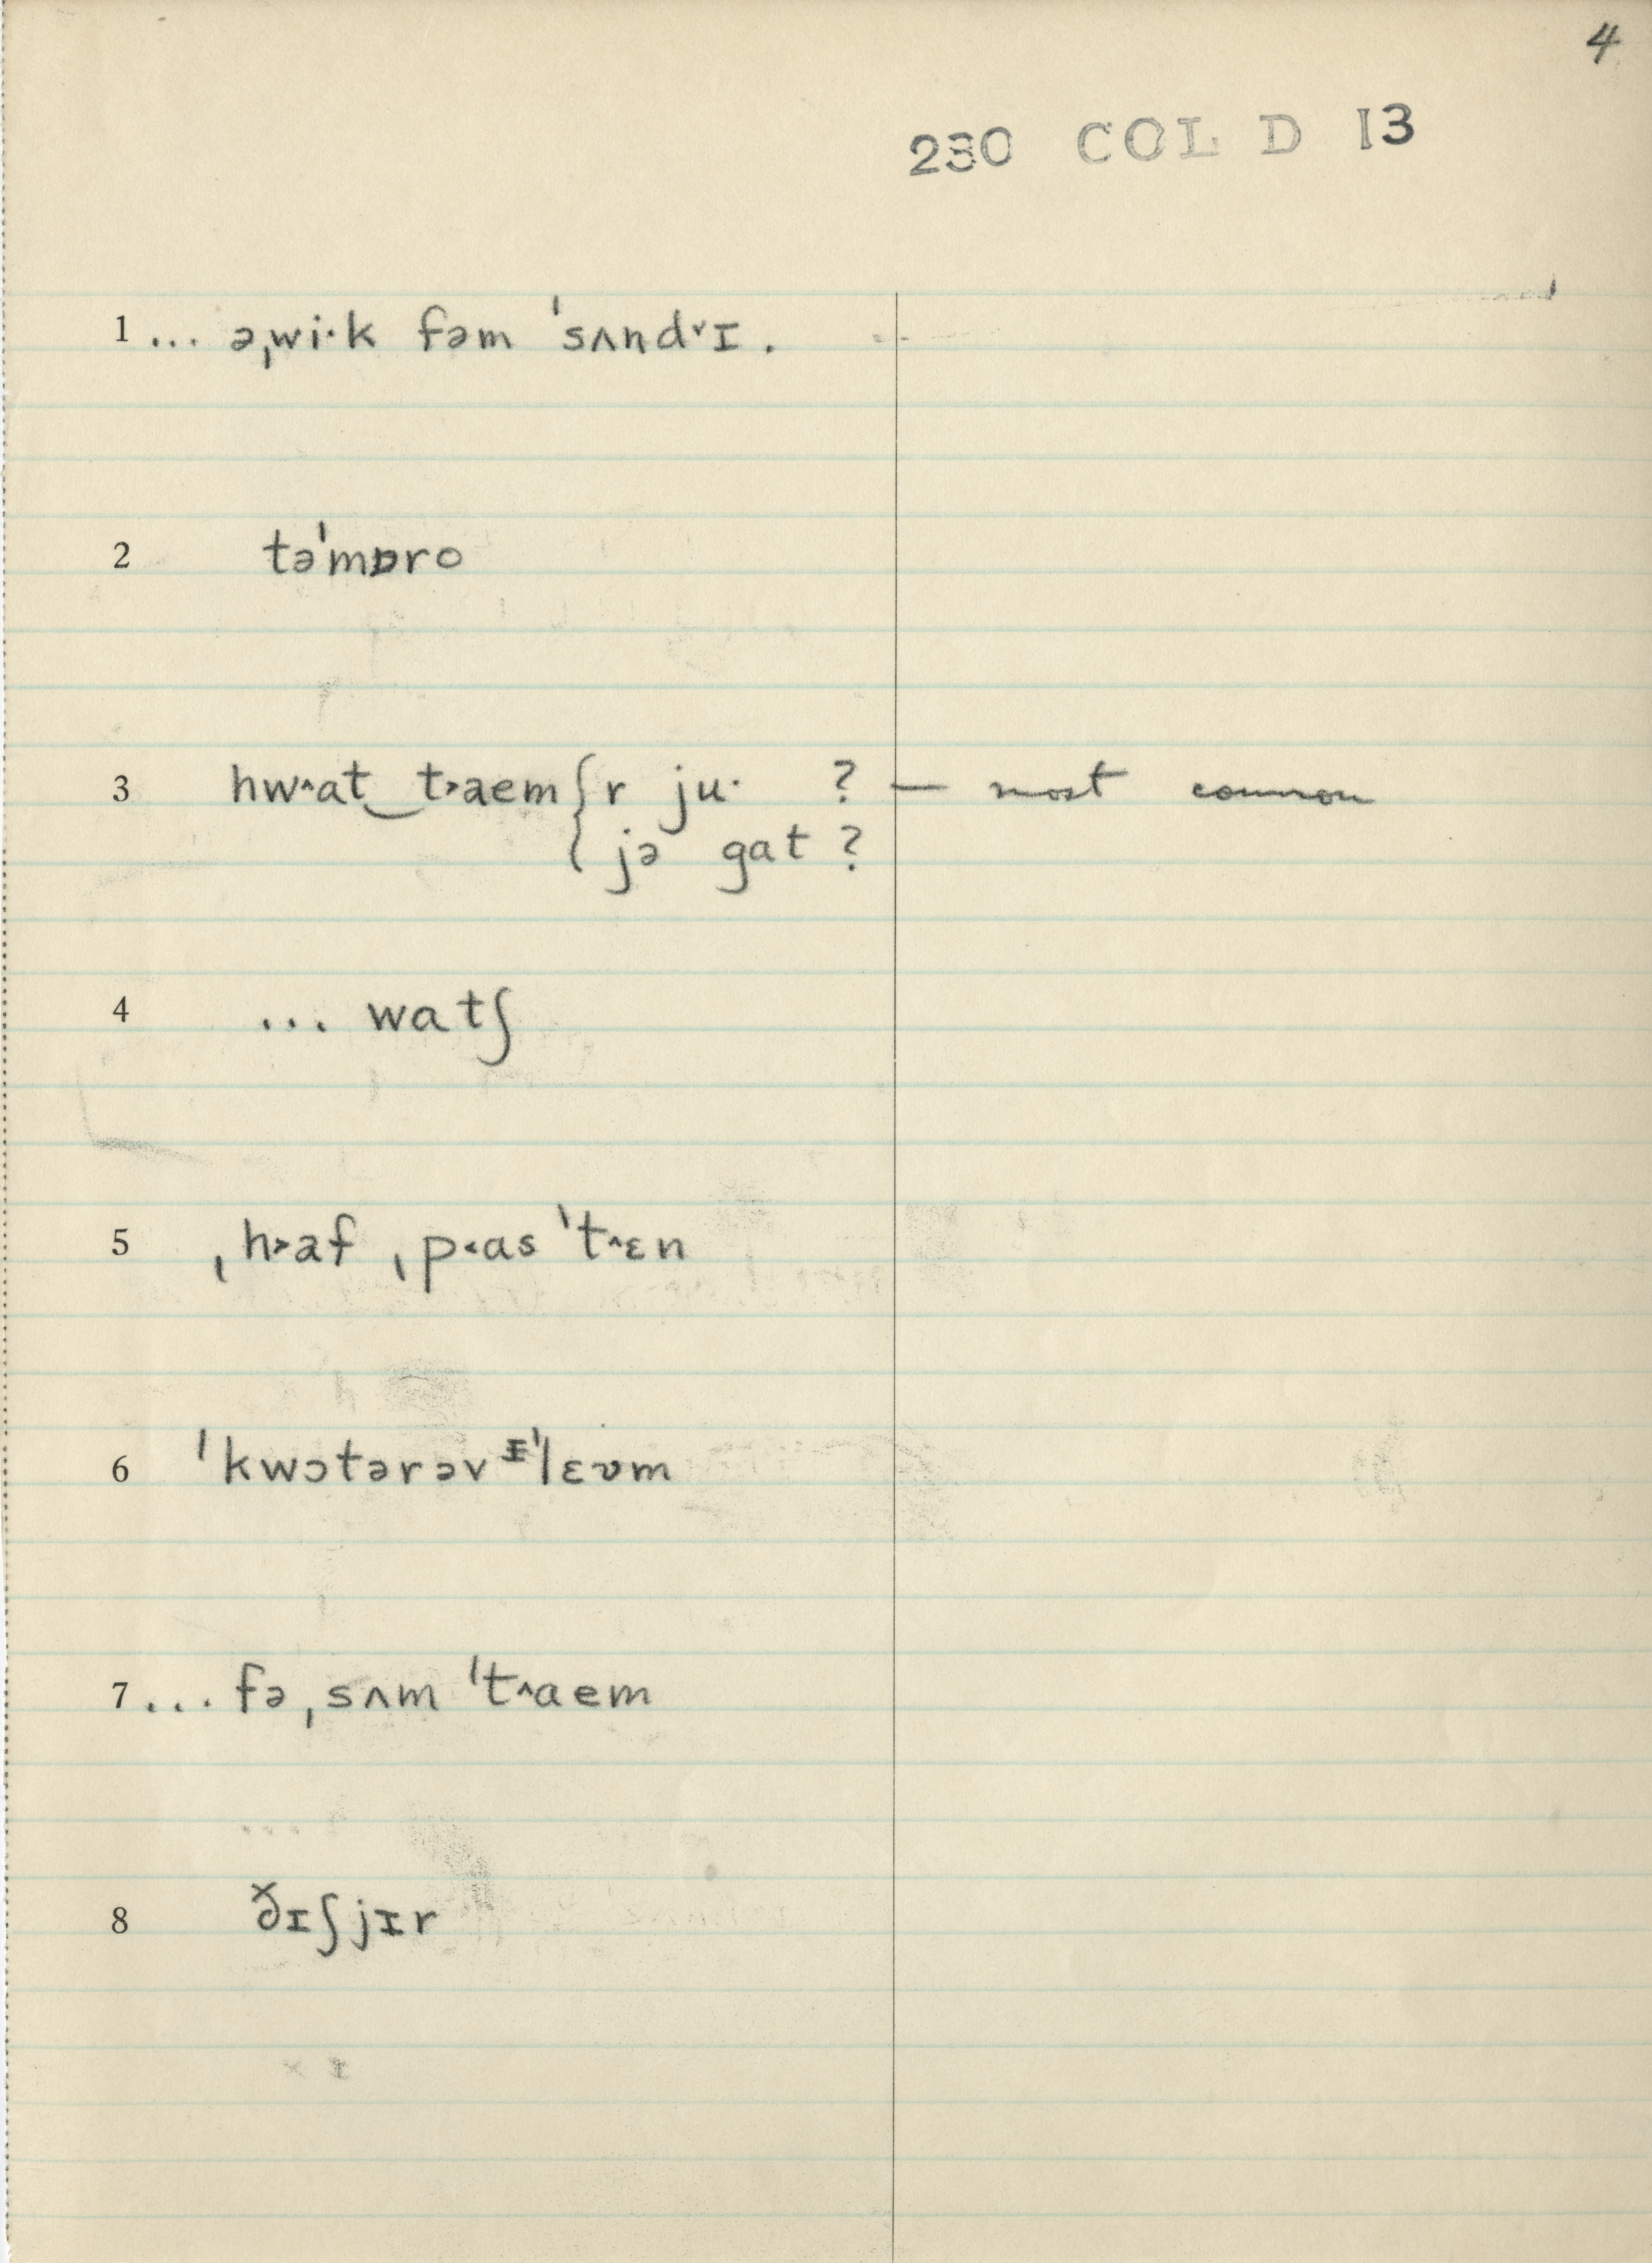 4
230 COL D 13
1 ... əˌwi·k fəm ˈsʌnd˅ɪ .
2 təˈmɒro
3 hw^at‿t˃aem { r ju· ? — most common
{ jə gat ?
4 ... watʃ
5 ˌh˃af ˌp˂as ˈt^ɛn
6 ˈkwɔtərəv ɪˈlɛʊm
7 ... fə ˌsʌm ˈt^aem
8 ð̌ɪʃjɪr